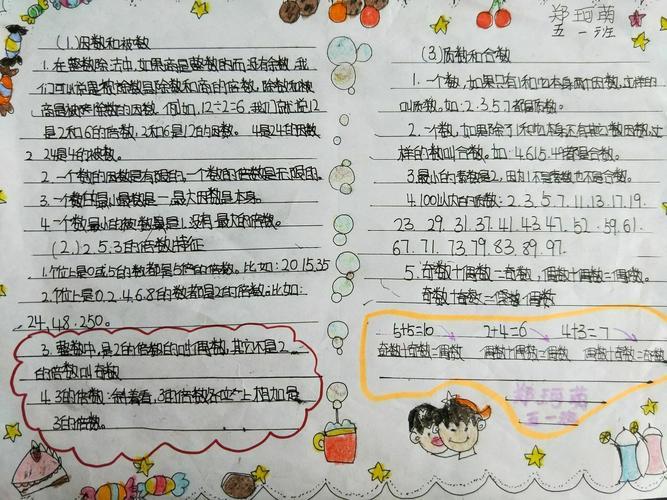 (1)因数和被数
1.在整数除法中,如果商是整数的而没有余数,我
们可以说是被除数是除数和商的倍数,除数和
商是被除数的因数。例如,12÷2=6,我们就说12
是2和6的倍数,2和6是12的因数。4是24的因数
24是4的被数。
2.一个数的因数是有限的,一个数的倍数是无限的。
3.一个数的最小数是一,最大因数是本身。
4.一个数最小的被数是1,没有最大的倍数。
(2)2.5.3的倍数特征
1.个位上是0或5的数都是5倍的倍数。比如:20.15.35
2.个位上是0.2.4.6.8的数都是2的倍数。比如:
24.48.250。
3.整数中,是2的倍数的叫偶数,其它不是2
的倍数叫奇数
4.3的倍数:3的倍数各位上相加是
3的倍数。
郑珂菊
五一班
(3)质数和合数
1.一个数,如果只有1和它本身两个因数,这样的
叫质数,如:2.3.5.7都是质数。
2.一个数,如果除了1和它本身还有其它因数,这
样的数叫合数。如:4.6.15.49都是合数。
3.最小的质数是2,因为1不是质数也不是合数。
4.100以内的质数:2.3.5.7.11.13.17.19.
23.29.31.37.41.43.47.52.59.61.
67.71.73.79.83.89.97.
5.奇数+偶数=奇数,偶数+偶数=偶数。
奇数+奇数=偶数
5+5=10 2+4=6 4+3=7
奇数+奇数=偶数 偶数+偶数=偶数 偶数+奇数=奇数
郑珂菊
五一班